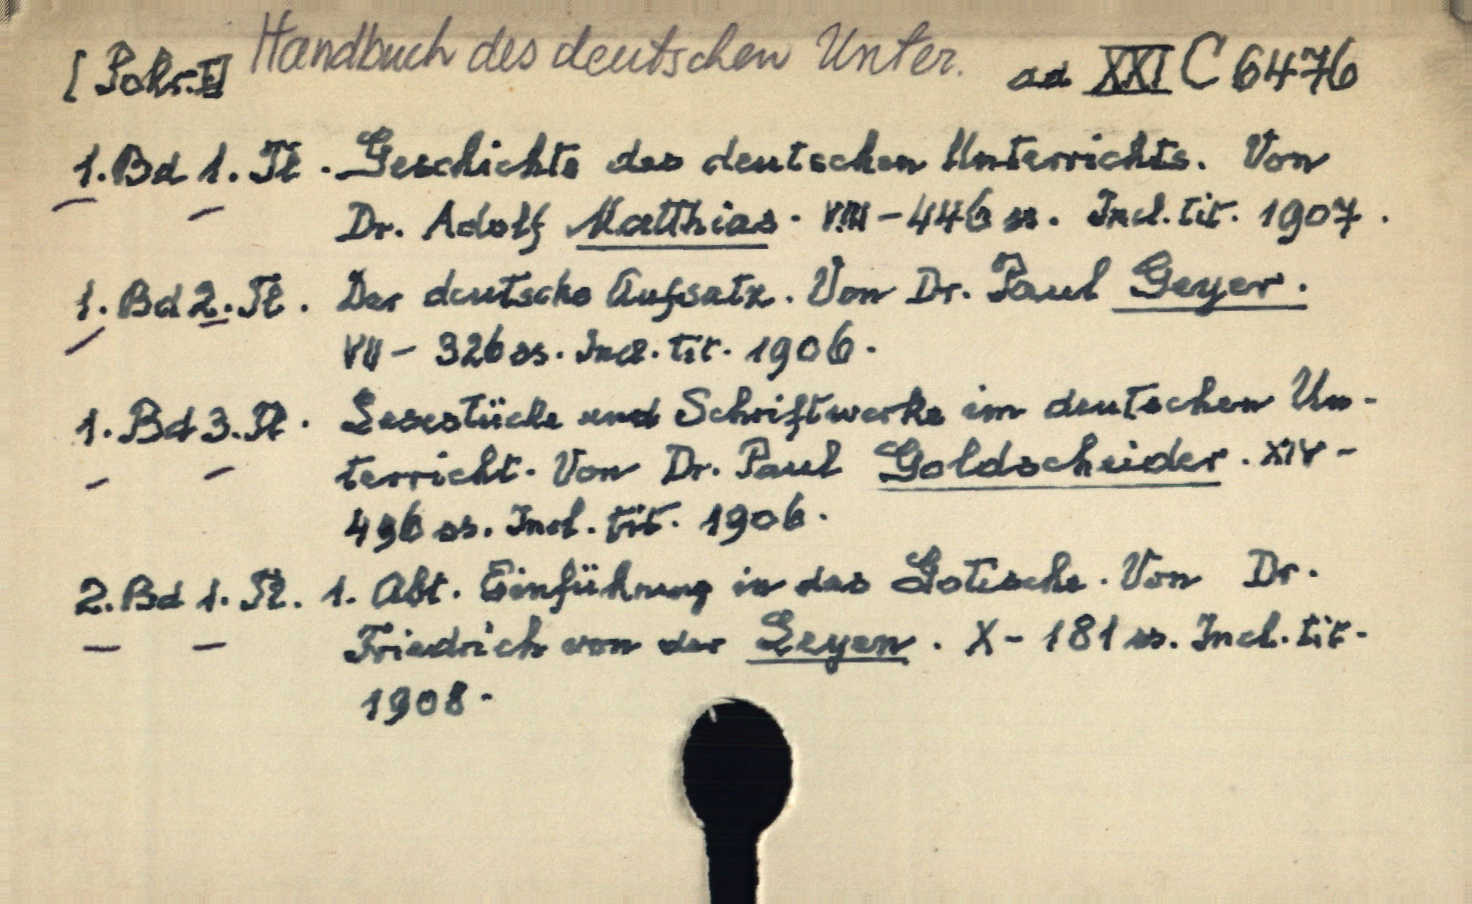 [Pokr. I] Handbuch des deutschen Unter. ad XXI C 6476
1. Bd 1. Tl. Geschichte des deutschen Unterrichts. Von
Dr. Adolf Matthias. VIII - 446 ss. Incl. tit. 1907.
1. Bd 2. Tl. Der deutsche Aufsatz. Von Dr. Paul Geyer.
VII - 326 ss. Incl. tit. 1906.
1. Bd 3. Tl. Lesestücke und Schriftwerke im deutschen Un-
terricht. Von Dr. Paul Goldscheider. XIV -
496 ss. Incl. tit. 1906.
2. Bd 1. Tl. 1. Abt. Einführung in das Gotische. Von Dr.
Friedrich von der Leyen. X - 181 ss. Incl. tit.
1908.